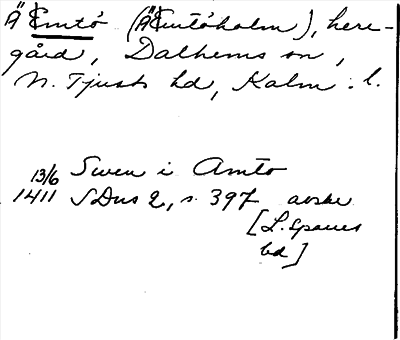 Ämtö (Ämtöholm), herre-
gård, Dalhems sn,
N. Tjusts hd, Kalm. l.
13/6 Swen i Amto
1411 SDns 2, s. 397 avskr
[L. Sparres
bd]